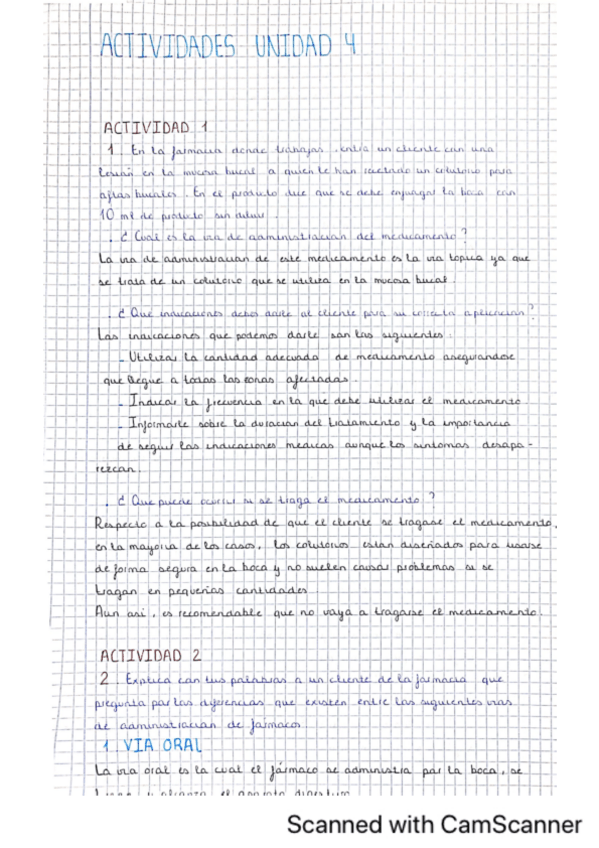 ACTIVIDADES UNIDAD 4
ACTIVIDAD 1
1. En la farmacia donde trabajas, entra un cliente con una
lesión en la mucosa bucal a quien le han recetado un colutorio para
aftas bucales. En el producto dice que se debe enjuagar la boca con
10 ml de producto sin diluir.
. ¿Cuál es la vía de administración del medicamento?
La vía de administración de este medicamento es la vía tópica ya que
se trata de un colutorio que se utiliza en la mucosa bucal.
. ¿Qué indicaciones debes darle al cliente para su correcta aplicación?
Las indicaciones que podemos darle son las siguientes:
- Utilizar la cantidad adecuada de medicamento asegurandose
que llegue a todas las zonas afectadas.
- Indicar la frecuencia en la que debe utilizar el medicamento.
- Informarle sobre la duración del tratamiento y la importancia
de seguir las indicaciones médicas aunque los síntomas desapa-
rezcan.
. ¿Qué puede ocurrir si se traga el medicamento?
Respecto a la posibilidad de que el cliente se tragase el medicamento,
en la mayoría de los casos, los colutorios están diseñados para usarse
de forma segura en la boca y no suelen causar problemas si se
tragan en pequeñas cantidades.
Aun así, es recomendable que no vaya a tragarse el medicamento.
ACTIVIDAD 2
2. Explica con tus palabras a un cliente de la farmacia que
pregunta por las diferencias que existen entre las siguientes vías
de administración de fármacos
1. VIA ORAL
La vía oral es la cual el fármaco se administra por la boca, se
Scanned with CamScanner